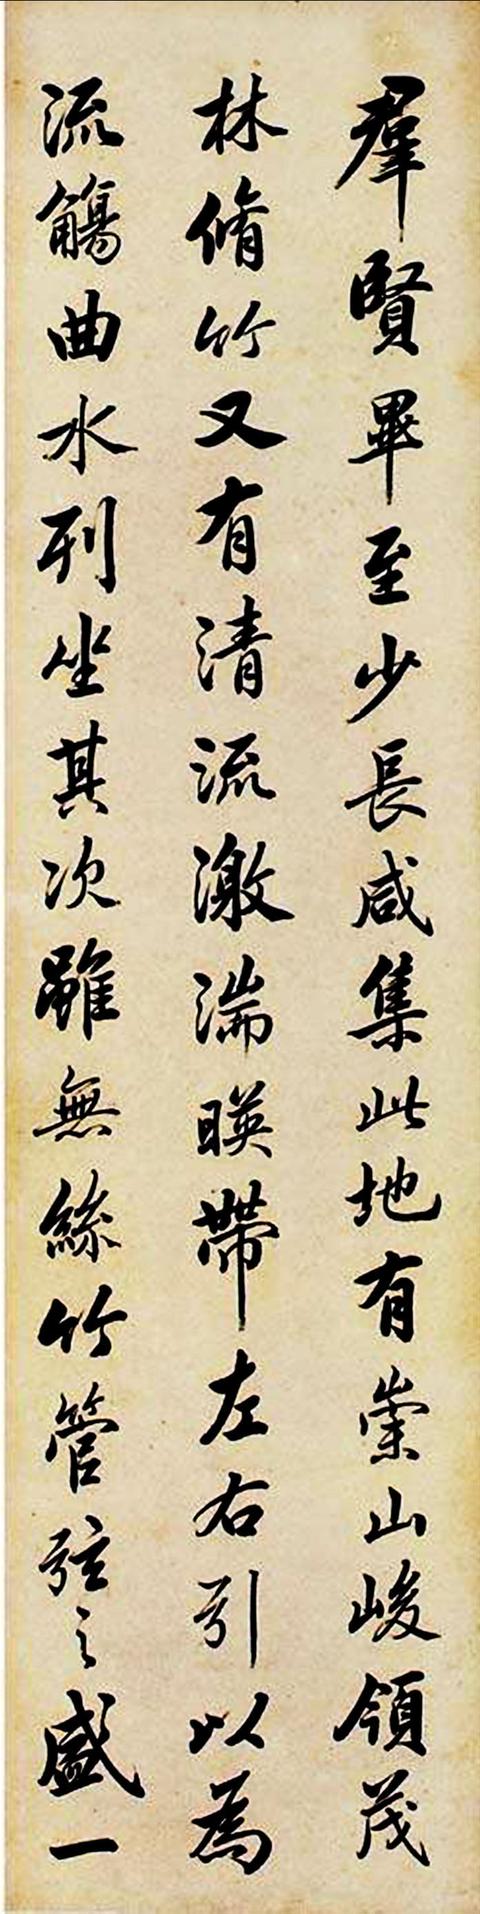 羣賢畢至少長咸集此地有崇山峻領茂
林脩竹又有清流激湍暎帶左右引以為
流觴曲水列坐其次雖無絲竹管弦之盛一